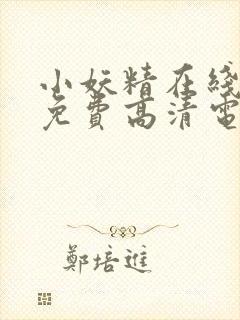 小妖精在綫
免費高清電
鄭培進